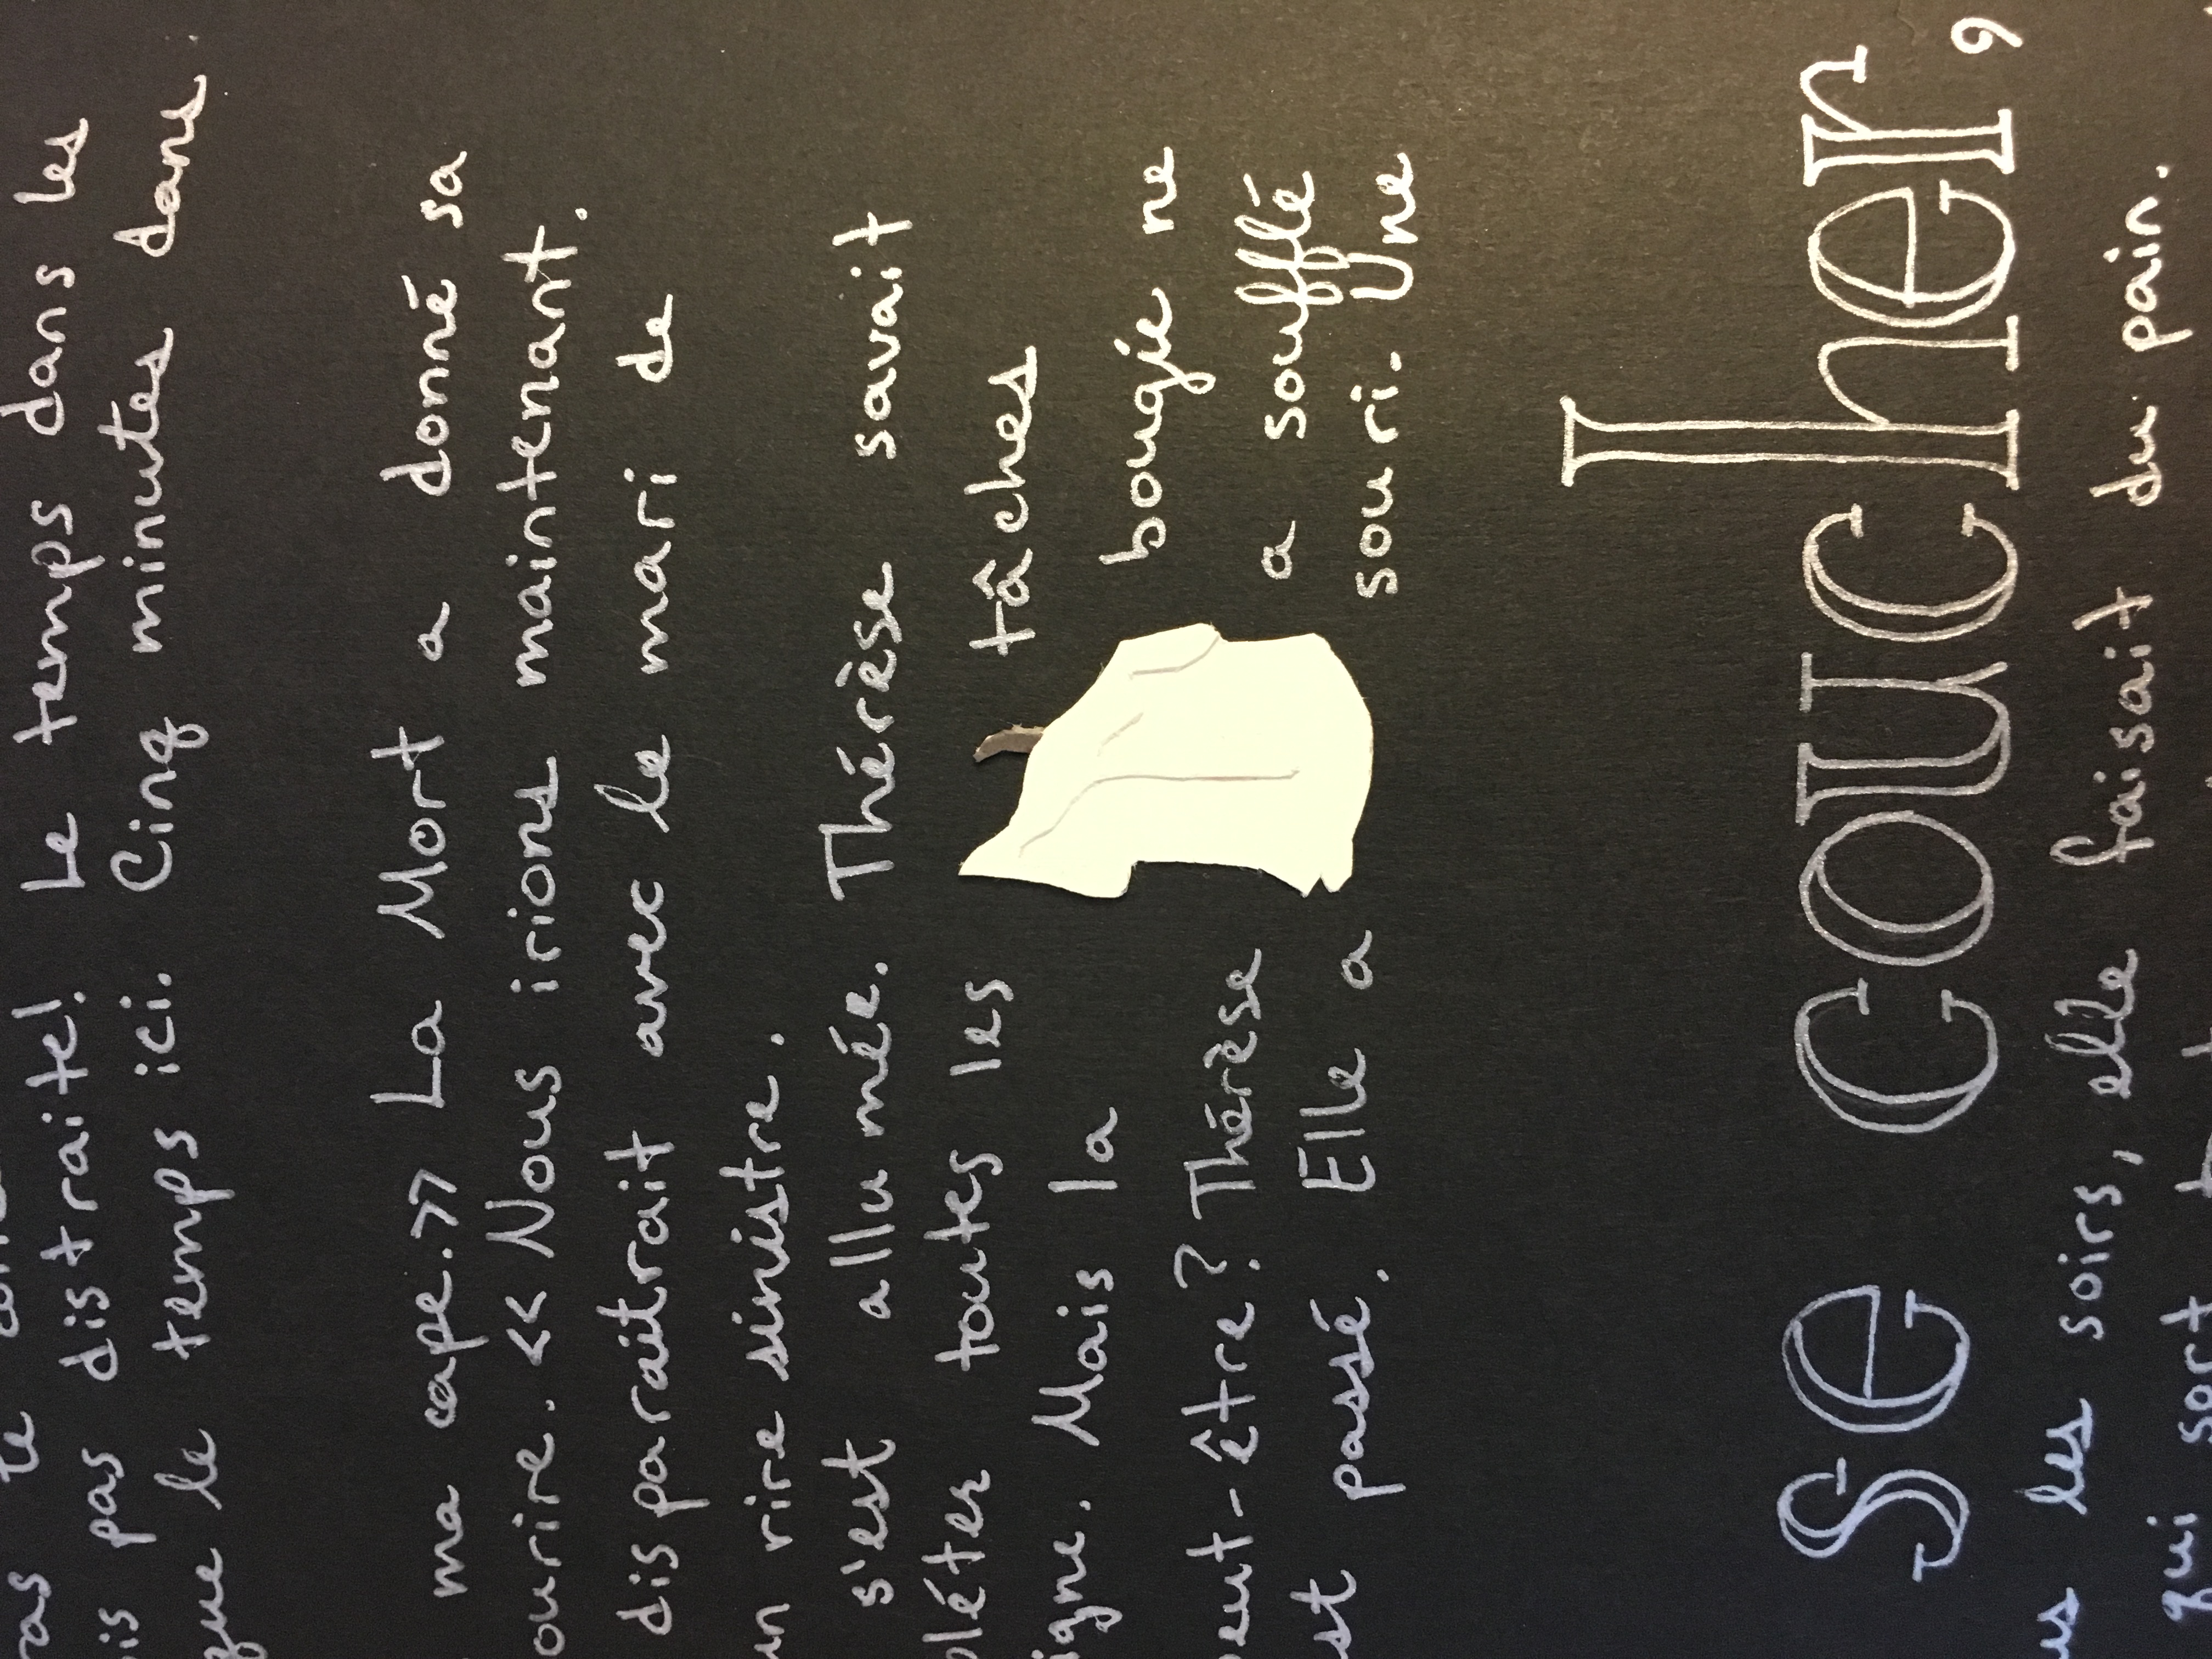 te
pas distraite! Le temps dans les
que le temps ici. Cinq minutes dans
ma cape.>> La Mort a donné sa
ourire. << Nous irions maintenant.
disparaîtrait avec le mari de
un rire sinistre.
s'est allumée. Thérèse savait
pléter toutes les tâches
igne. Mais la bougie ne
peut-être? Thérèse a soufflé
est passé. Elle a souri. Une
se coucher,
us les soirs, elle faisait du pain.
qui sort